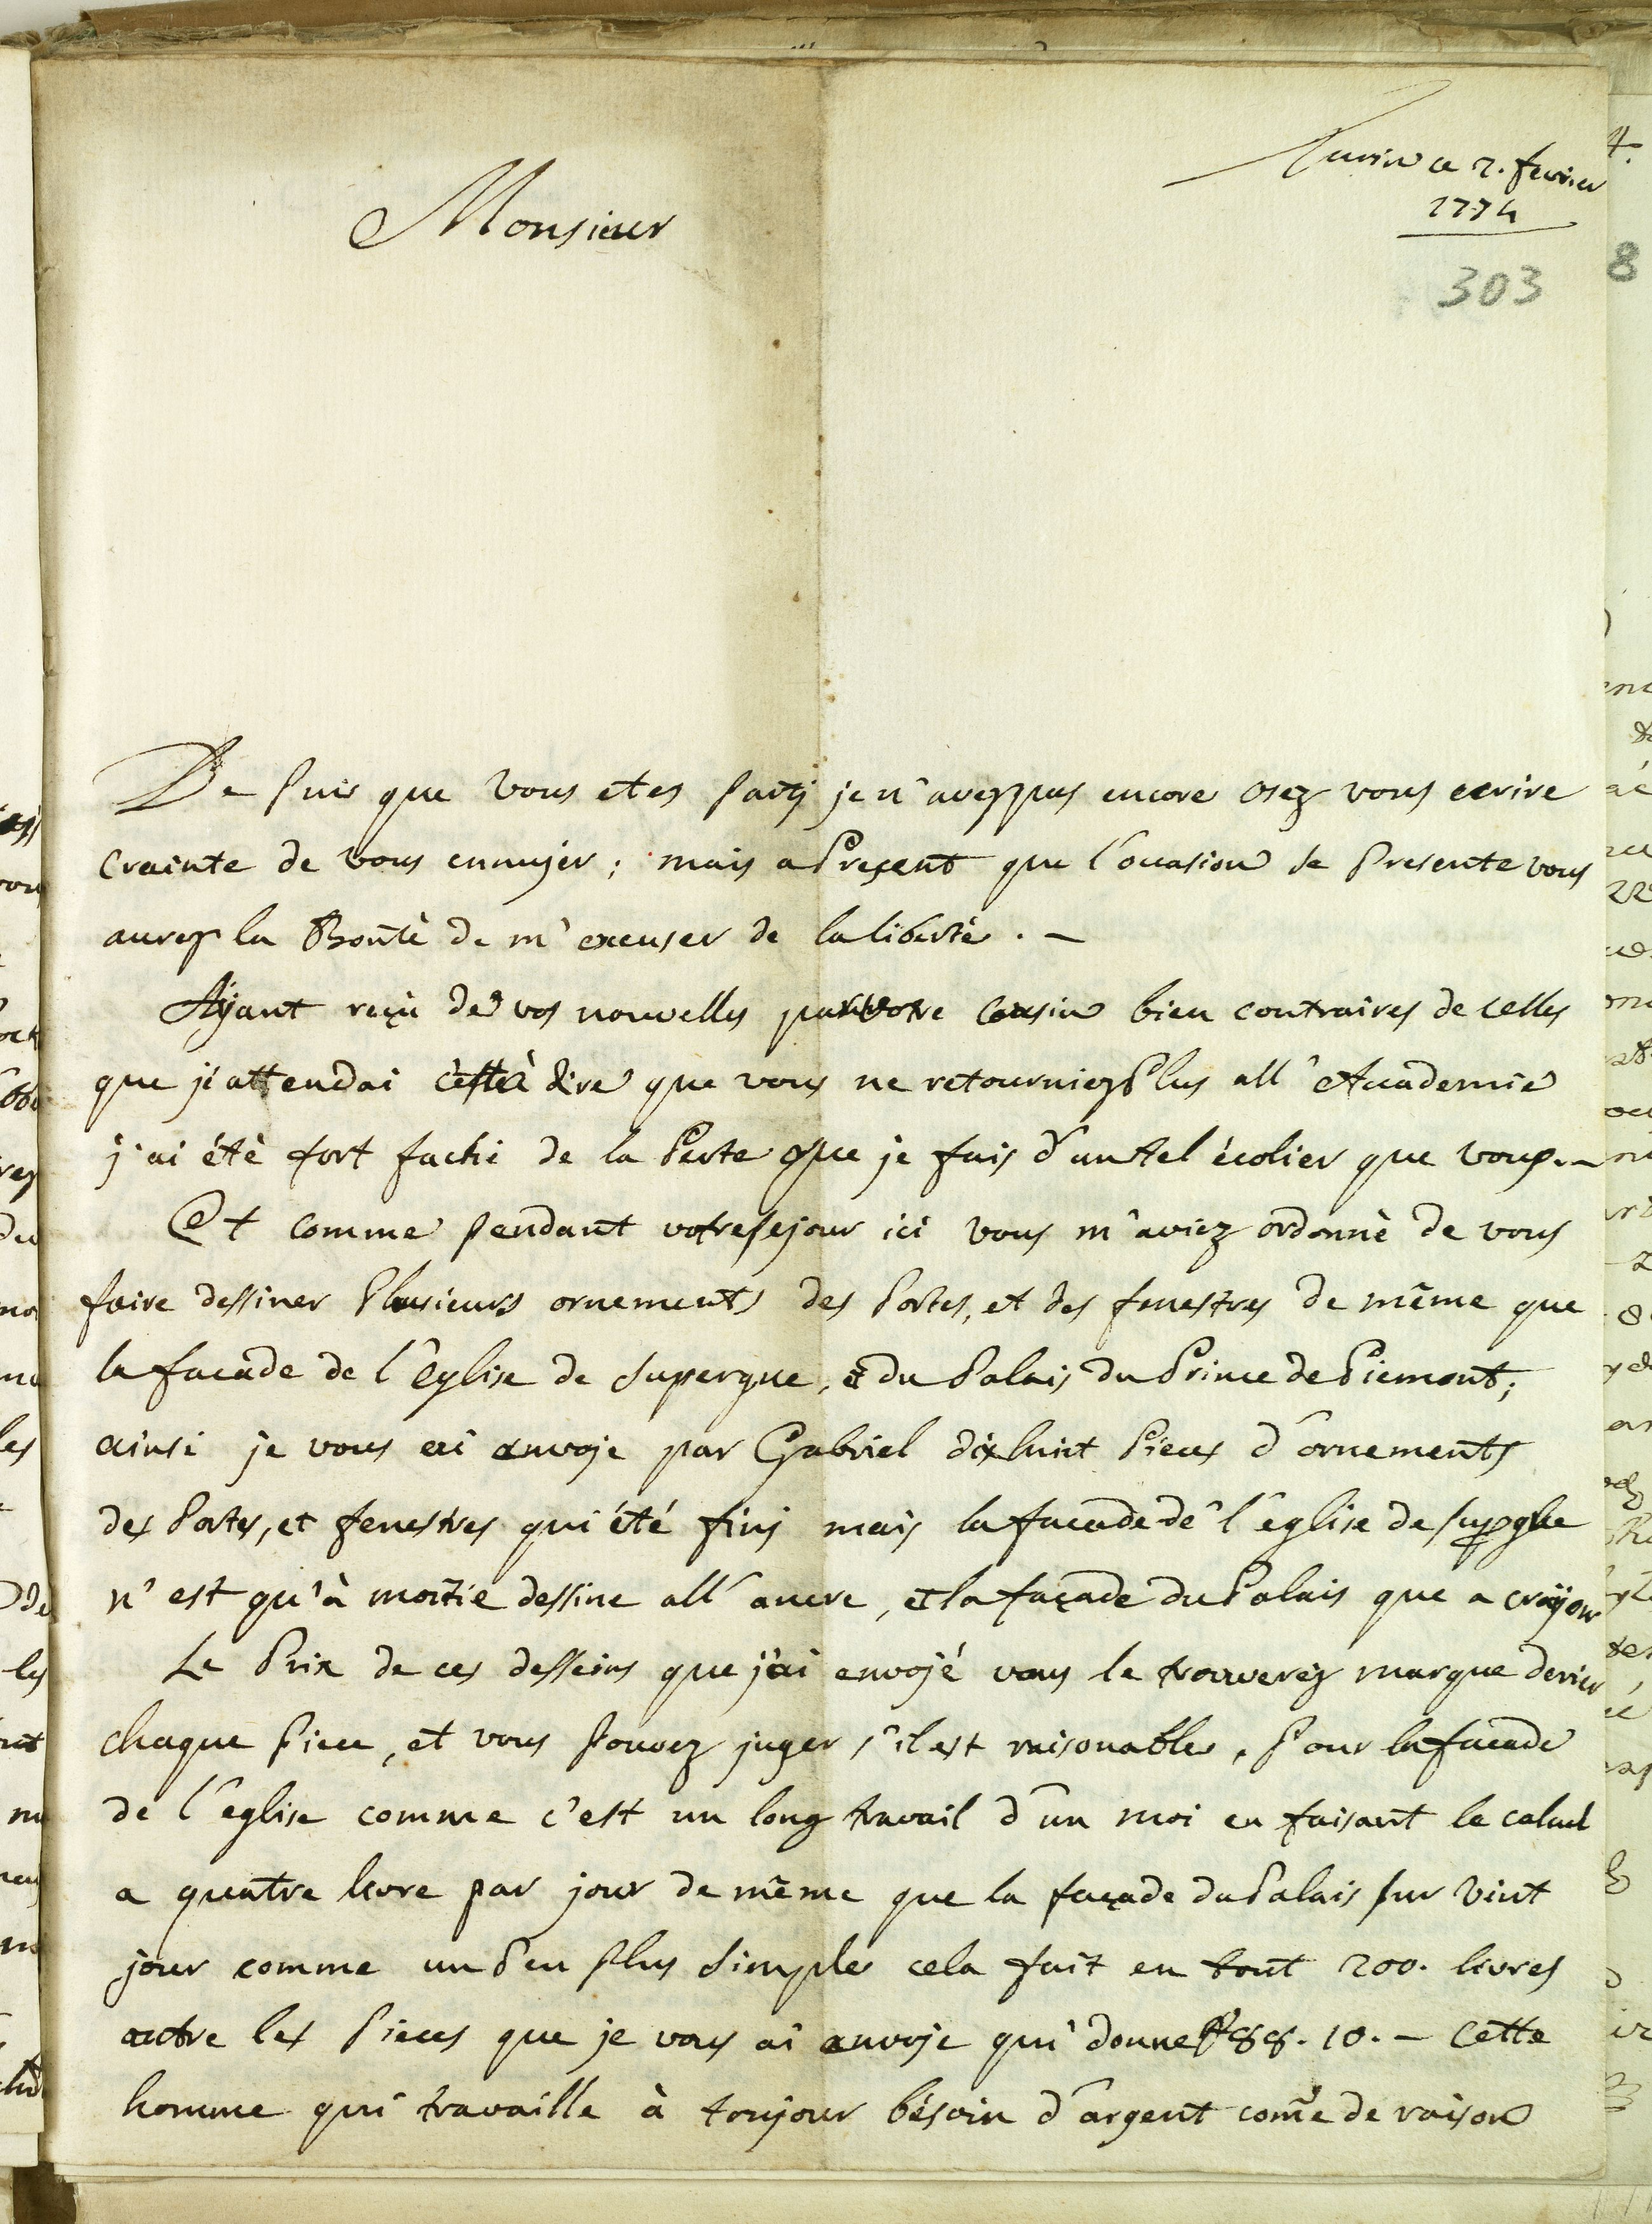 Turin ce 2. fevrier
1774
Monsieur
303
De puis que vous etes parti je n'avez pas encore osez vous ecrire
crainte de vous ennujer; mais a Present que l'occasion se Presente vous
aurez la Bontè de m'excuser de la libertè. -
Ajant reçu de vos nouvelles par votre Cousin bien contraires de celles
que j'attendai c'est à dire que vous ne retourniez Plus all'Academie
j'ai étè fort fachè de la Perte que je fais d'un tel écolier que vous. -
Et comme pendant votre sejour ici vous m'aviez ordonnè de vous
faire dessiner Plusieurs ornements des Portes, et des fenestres de même que
la facade de l'Eglise de Supergue, et du Palais du Prince de Piemont;
ainsi je vous ai anvoje par Gabriel dix huit Pieces d'ornements
des Portes, et fenestres qui été finj mais la facade de l'église de supergue
n'est qu'à moitie dessine all'ancre, et la façade du Palais que a craijon
Le Prix de ces desseins que j'ai envojé vous le trouverez marque derier
chaque Piece, et vous Pouvez juger s'il est raisonable, Pour la facade
de l'eglise comme c'est un long travail d'un moi en faisant le calcul
a quatre livre par jour de même que la façade du Palais pur vint
jour comme un Peu Plus Simple cela fait en tout 200. livres
outre les Pieces que je vous ai anvoje qui donne 88. 10. - Cette
homme qui travaille à toujour bésoin d'argent come de raison